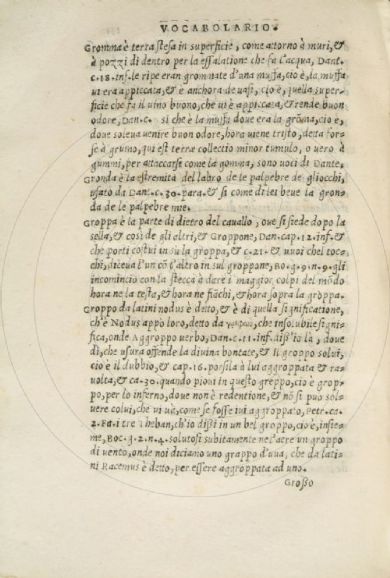 VOCABOLARIO.
Gromma è terra stesa in superficie, come attorno à muri, &
à pozzi di dentro per la essalatione che fa l'acqua, Dant.
c.18. inf. le ripe eran grommate d'una muffa, cio è, la muffa
ui era appiccata, & è anchora de uasi, cio è, quella super-
ficie che fa il uino buono, che ui è appiccata, & rende buon
odore, Dan.c. si che è la muffa doue era la grōma, cio è,
doue soleua uenire buon odore, hora uiene tristo, detta for-
se à grumo, qui est terræ collectio minor tumulo, o uero à
gummi, per attaccarse come la gomma, sono uoci di Dante.
Gronda è la estremità del labro de le palpebre de gliocchi,
usato da Dant.c.30.para. & si come di lei beue la gron-
da de le palpebre mie.
Groppa è la parte di dietro del cauallo, oue si siede dopo la
sella, & così de gli altri, & Groppone, Dan.cap.12.inf. &
che porti costui in su la groppa, & c.21. & uuoi chel toc-
chi, diceua l'un cō l'altro in sul groppone, Bo.g.9.n.9. gli
incominciò con la stecca à dare i maggior colpi del mōdo
hora ne la testa, & hora ne fiāchi, & hora sopra la groppa.
Groppo da latini nodus è detto, & è di quella significatione,
ch'è Nodus appò loro, detto da che insolubile signi-
fica, onde Aggroppo uerbo, Dan.c.11.inf. diss'io là, doue
di, che usura offende la diuina bontate, & il groppo solui,
cio è il dubbio, & cap.16. porsila à lui aggroppata & ra-
uolta, & ca.30. quando pioui in questo greppo, cio è grop-
po, per lo inferno, doue non è redentione, & nō si può sol-
uere colui, che ui uà, come se fosse iui aggroppato, Petr.ca.
2.Fa. i tre Theban, ch'io dissi in un bel groppo, cio è, insie-
me, Boc.g.2.n.4. solutosi subitamente nel'aere un groppo
di uento, onde noi diciamo uno grappo d'uua, che da lati-
ni Racemus è detto, per essere aggroppata ad uno.
Grosso